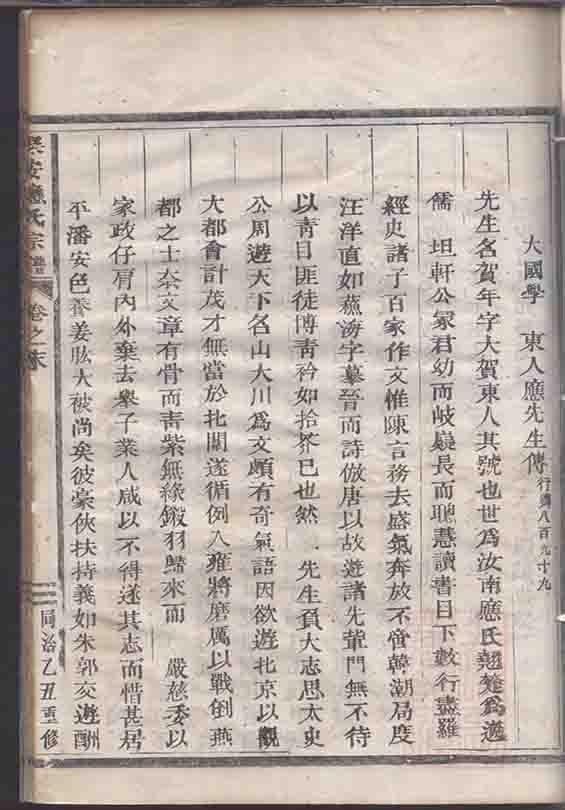 大國學 東人應先生傳行儕八百九十九
先生名賀年字大賀東人其號也世爲汝南應氏翹楚爲邁
儒 坦軒公冢君幼而岐嶷長而聰慧讀書目下數行盡羅
經史諸子百家作文惟陳言務去盛氣奔放不啻韓潮局度
汪洋直如蘇海字摹晉而詩倣唐以故遊諸先輩門無不待
以靑目匪徒博靑衿如拾芥已也然 先生負大志思太史
公周遊天下名山大川爲文頗有奇氣語因欲遊北京以觀
大都會計茂才無當於北闈遂循例入雍將磨厲以戰劊燕
都之士柰文章有骨而靑紫無緣鎩羽歸來而 嚴慈委以
家政仔肩內外棄去舉子業人咸以不得遂其志而惜甚居
平潘安色養姜肱大被尚矣彼豪俠扶持義如朱郭交遊酬
應氏宗譜
卷之末
同治乙丑重修